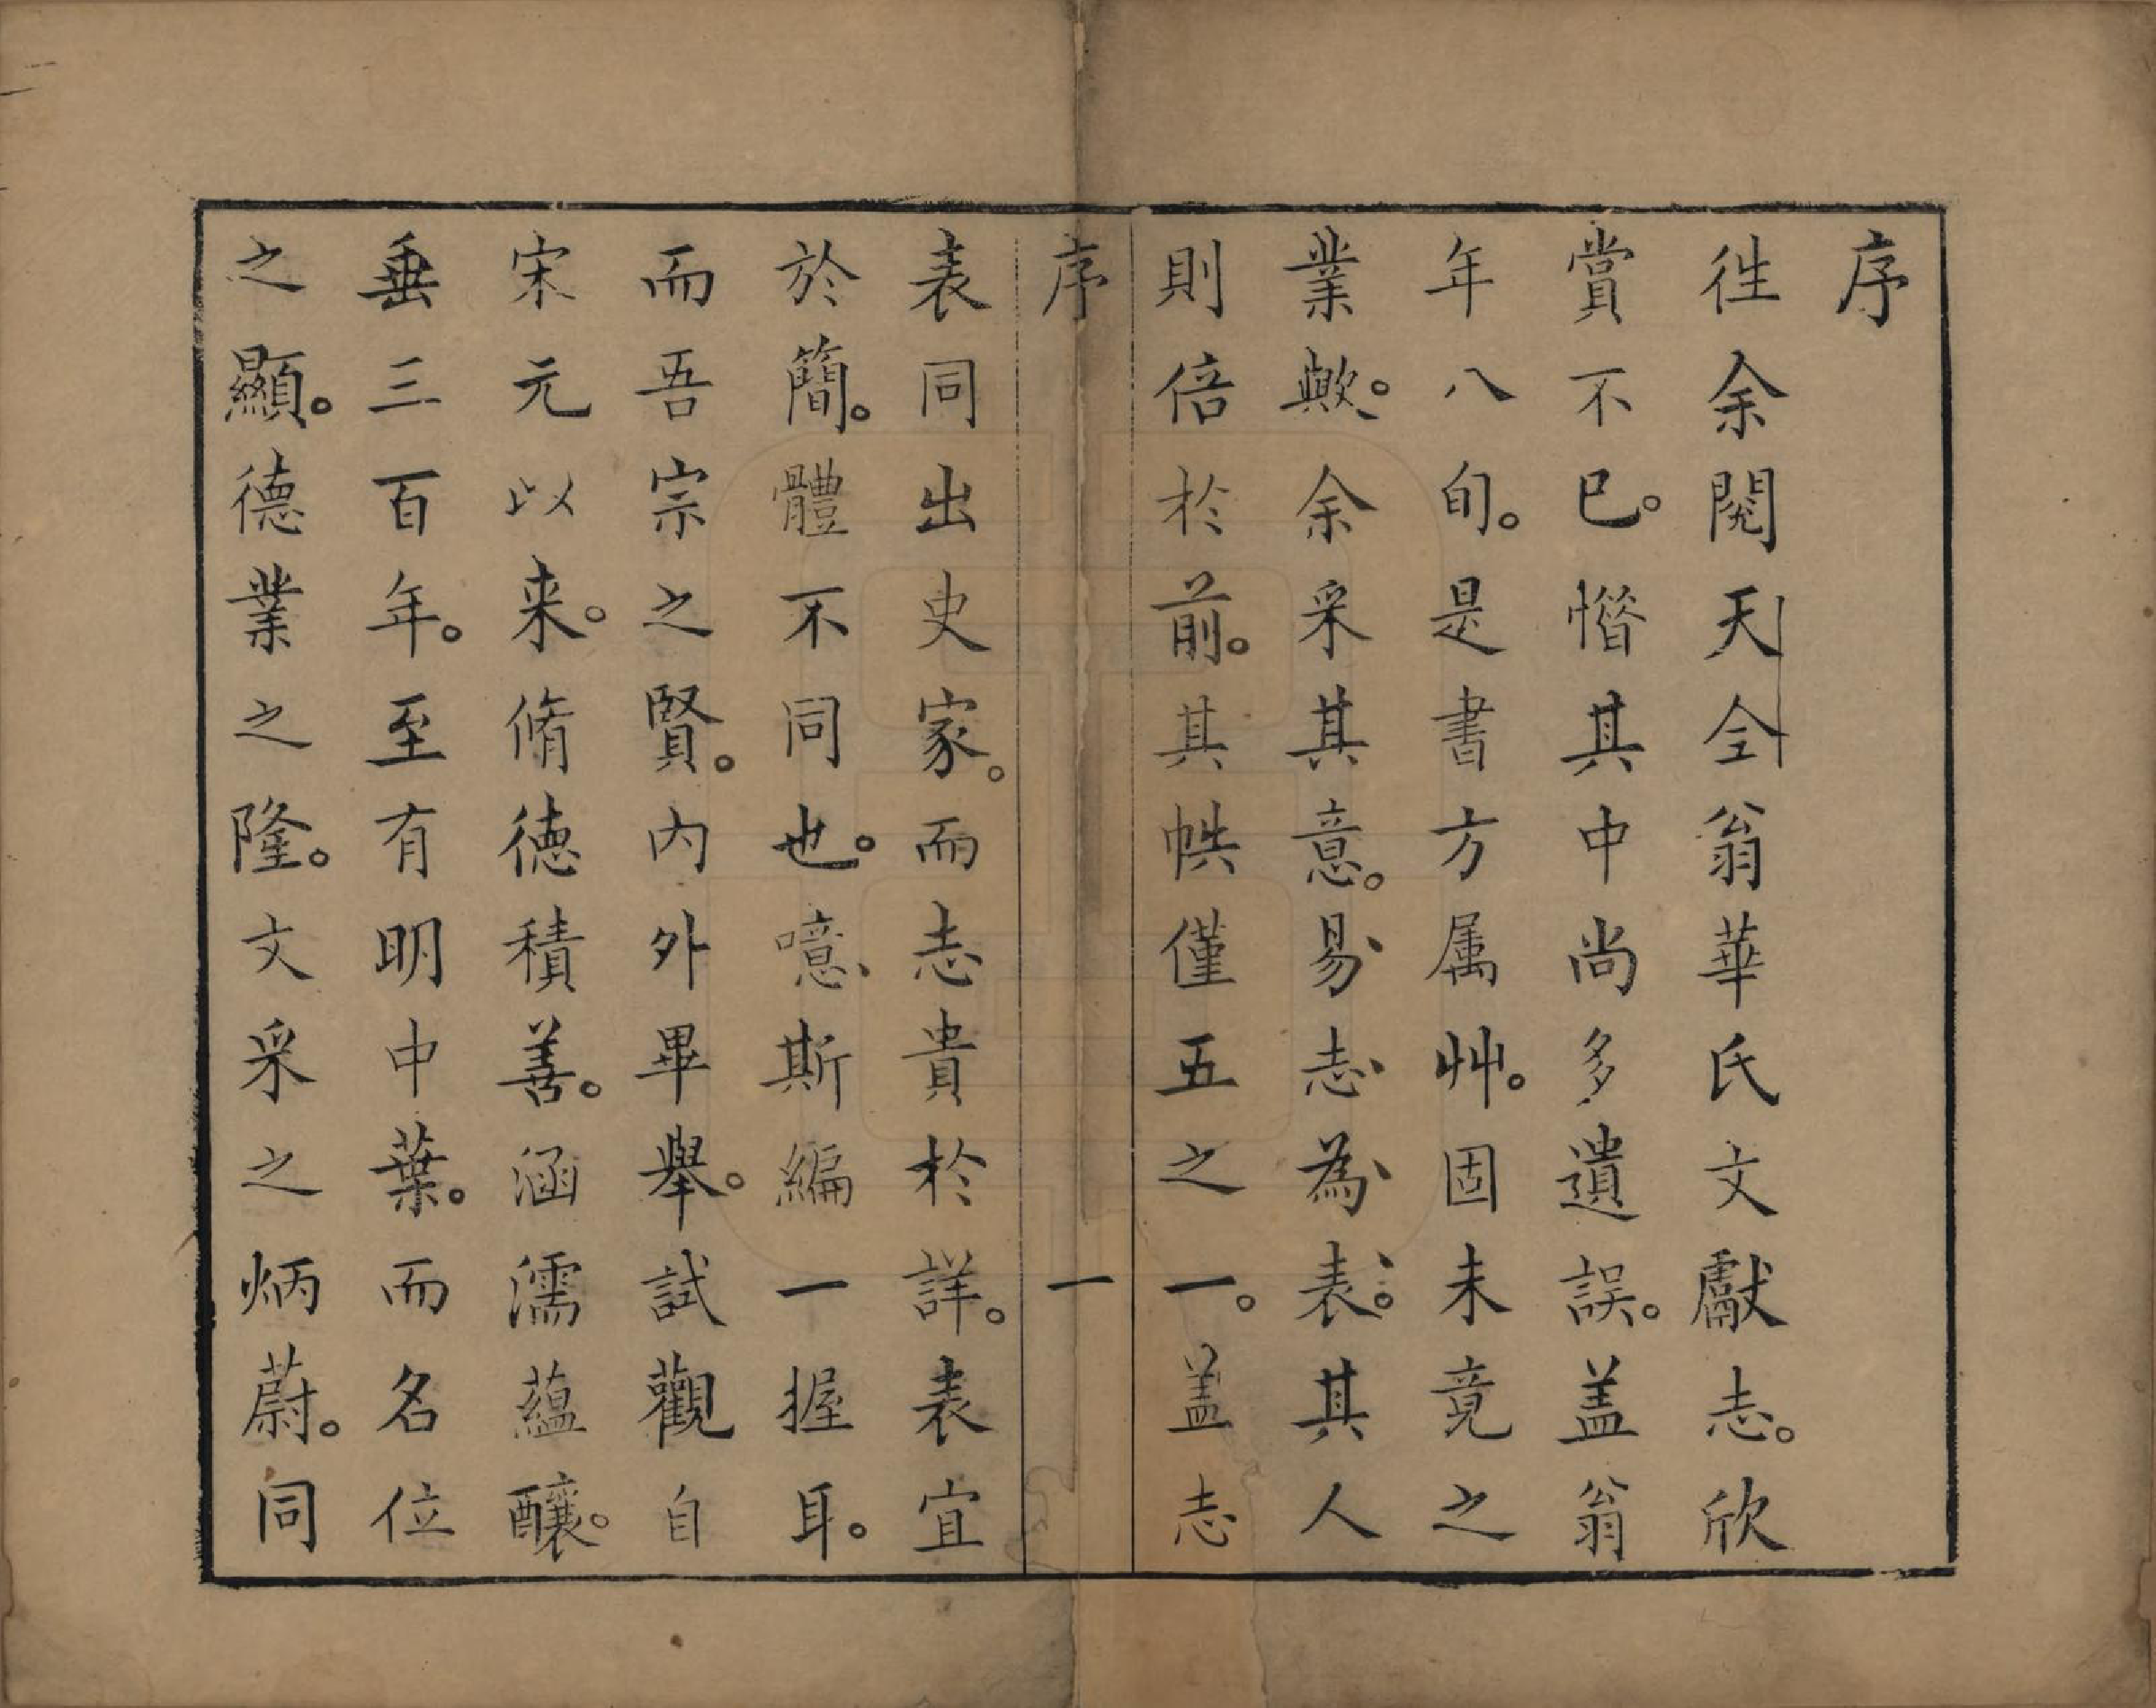 序
徃余閱天仝翁華氏文獻志。欣
賞不已。惜其中尚多遺誤。盖翁
年八旬。是書方属艸。固未竟之
業歟。余采其意。易志為表。其人
則倍於前。其帙僅五之一。盖志
序 一
表同出史家。而志貴於詳。表宜
於簡。體不同也。噫斯編一握耳。
而吾宗之賢。内外畢舉。試觀自
宋元以来。脩徳積善。涵濡蘊釀。
垂三百年。至有明中葉。而名位
之顯。德業之隆。文采之炳蔚。同